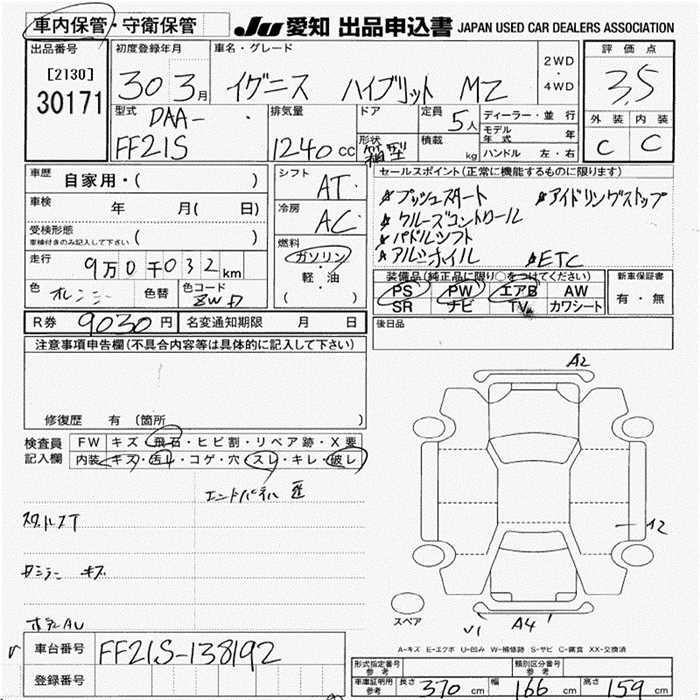 車内保管・守衛保管 JU 愛知 出品申込書 JAPAN USED CAR DEALERS ASSOCIATION
出品番号 初度登録年月 車名・グレード 評価点
[2130] 30年3月 イグニス ハイブリット MZ 2WD・4WD 3.5
30171
型式 DAA- 排気量 ドア 定員 5人 ディーラー・並行 外装 内装
FF21S 1240cc 形状 箱型 積載 kg モデル年式 年 C C
ハンドル 左・右
車歴 自家用・( ) シフト AT セールスポイント(正常に機能するものに限ります)
車検 年 月( 日) 冷房 AC プッシュスタート アイドリングストップ
受検形態 車検付きのみ記入して下さい ( ) クルーズコントロール
走行 9万0千032km 燃料 ガソリン・軽・油 ( ) パドルシフト
アルミホイル ETC
色 オレンジー 色替 色コード ZWD 装備品(純正品に限り○をつけてください) 新車保証書
PS PW エアB AW 有・無
SR ナビ TV カワシート
R券 9030円 名変通知期限 月 日 後日品
注意事項申告欄(不具合内容等は具体的に記入して下さい)
A2
修復歴 有 (箇所 )
検査員記入欄 FW キズ・飛石・ヒビ割・リペア跡・X要
内装 キズ・汚レ・コゲ・穴・スレ・キレ・破レ
エンドパネル
A2
キズ
スペア
V1 A4
A-キズ E-エクボ U-凹み W-補修跡 S-サビ C-腐食 XX-交換済
車台番号 FF21S-138192
登録番号
形式指定番号 参考 類別区分番号 参考
車庫証明用 参考 長さ 370cm 幅 166cm 高さ 159cm